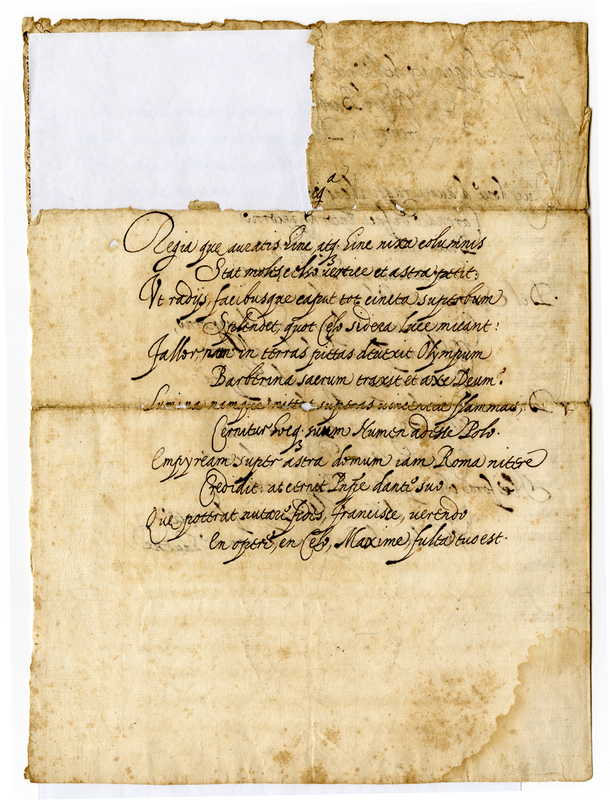 Regia que auratis hinc atq. hinc nixa columnis
Stat moles, celso vertice et astra petit:
Vt radijs, facibusque caput tot cincta superbum
Splendet, quot Cęlo sidera luce micant:
Fallor, nam in terras pietas Olympum
Barberina sacrum traxit et axe Deum.
Lumina namque superas flammas,
Cernitur hocq. suum Numen adesse Polo.
Empyream super astra domum iam Roma nitere
Credidit: at cernit Prīpe dante suo
Quę poterat nutare fides, Francisce, verendo
En opere, en Cęlo, Maxime, fulta tuo est.